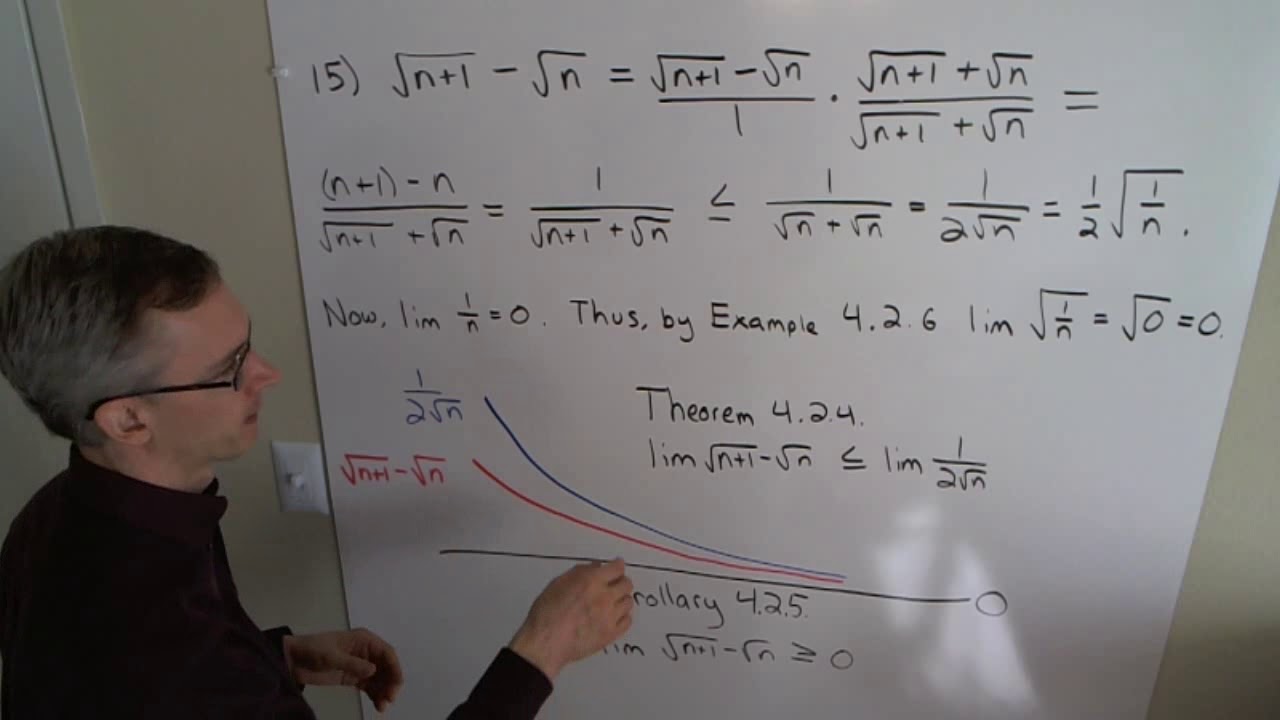 15) √n+1 − √n = √n+1 − √n / 1 · √n+1 + √n / √n+1 + √n =
(n+1) − n / √n+1 + √n = 1 / √n+1 + √n ≤ 1 / √n + √n = 1 / 2√n = 1/2 √1/n .
Now, lim 1/n = 0. Thus, by Example 4.2.6 lim √1/n = √0 = 0.
1 / 2√n
Theorem 4.2.4.
√n+1 − √n
lim √n+1 − √n ≤ lim 1 / 2√n
0
rollary 4.2.5.
lim √n+1 − √n ≥ 0